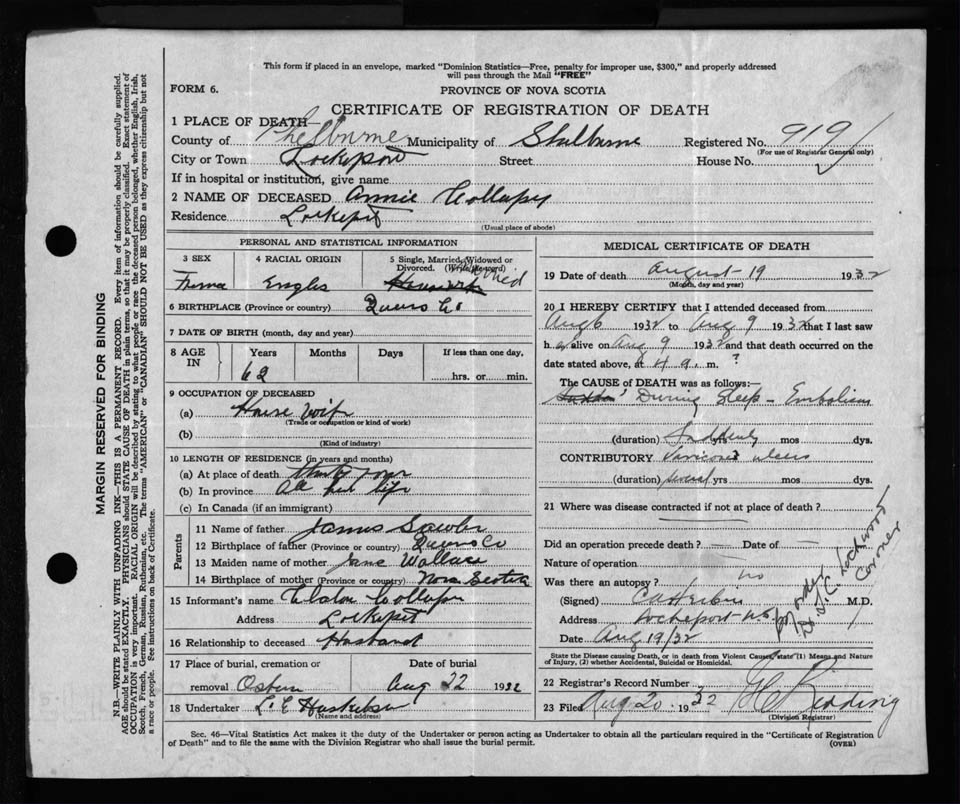 This form if placed in an envelope, marked "Dominion Statistics—Free, penalty for improper use, $300," and properly addressed
will pass through the Mail "FREE"
FORM 6.
PROVINCE OF NOVA SCOTIA
CERTIFICATE OF REGISTRATION OF DEATH
1 PLACE OF DEATH
County of Shelburne Municipality of Shelburne Registered No. 919
(For use of Registrar General only)
City or Town Lockeport Street House No.
If in hospital or institution, give name
2 NAME OF DECEASED Annie Collupy
Residence Lockeport
(Usual place of abode)
PERSONAL AND STATISTICAL INFORMATION
3 SEX 4 RACIAL ORIGIN 5 Single, Married, Widowed or
Divorced. (Write the word)
Married
6 BIRTHPLACE (Province or country) Queens Co
7 DATE OF BIRTH (month, day and year)
8 AGE IN Years Months Days If less than one day,
62 hrs. or min.
9 OCCUPATION OF DECEASED
(a) House wife
(Trade or occupation or kind of work)
(b)
(Kind of industry)
10 LENGTH OF RESIDENCE (in years and months)
(a) At place of death
(b) In province All her life
(c) In Canada (if an immigrant)
Parents
11 Name of father James
12 Birthplace of father (Province or country) Queens Co
13 Maiden name of mother Jane Wallace
14 Birthplace of mother (Province or country) Nova Scotia
15 Informant's name Collupy
Address Lockeport
16 Relationship to deceased Husband
17 Place of burial, cremation or Date of burial
removal Aug 22 1932
18 Undertaker L. E
(Name and address)
MEDICAL CERTIFICATE OF DEATH
19 Date of death August - 19 1932
(Month, day and year)
20 I HEREBY CERTIFY that I attended deceased from
Aug 6 1932 to Aug 9 1932 that I last saw
h er alive on Aug 9 1932 and that death occurred on the
date stated above, at 4 a. m. ?
The CAUSE of DEATH was as follows:—
During Sleep - Embolism
(duration) Suddenly yrs mos dys.
CONTRIBUTORY Varicose ulcers
(duration) several yrs mos dys.
21 Where was disease contracted if not at place of death?
Did an operation precede death? — Date of —
Nature of operation
Was there an autopsy? no
(Signed) M.D.
Address Lockeport N.S.
Date Aug 19/32
Lockwood
Coroner
State the Disease causing Death, or in death from Violent Causes, state (1) Means and Nature
of Injury, (2) whether Accidental, Suicidal or Homicidal.
22 Registrar's Record Number
23 Filed Aug 20 1932 Redding
(Division Registrar)
Sec. 46—Vital Statistics Act makes it the duty of the Undertaker or person acting as Undertaker to obtain all the particulars required in the "Certificate of Registration
of Death" and to file the same with the Division Registrar who shall issue the burial permit.
(OVER)
MARGIN RESERVED FOR BINDING
N.B.—WRITE PLAINLY WITH UNFADING INK—THIS IS A PERMANENT RECORD. Every item of information should be carefully supplied.
AGE should be stated EXACTLY. PHYSICIANS should STATE CAUSE OF DEATH in plain terms, so that it may be properly classified. Exact statement of
OCCUPATION is very important. RACIAL ORIGIN will be described by stating to what people or race the deceased person belonged, whether English, Irish,
Scotch, French, German, Russian, Ruthenian, etc. The terms "AMERICAN" or "CANADIAN" SHOULD NOT BE USED as they express citizenship but not
a race or people. See instructions on back of Certificate.